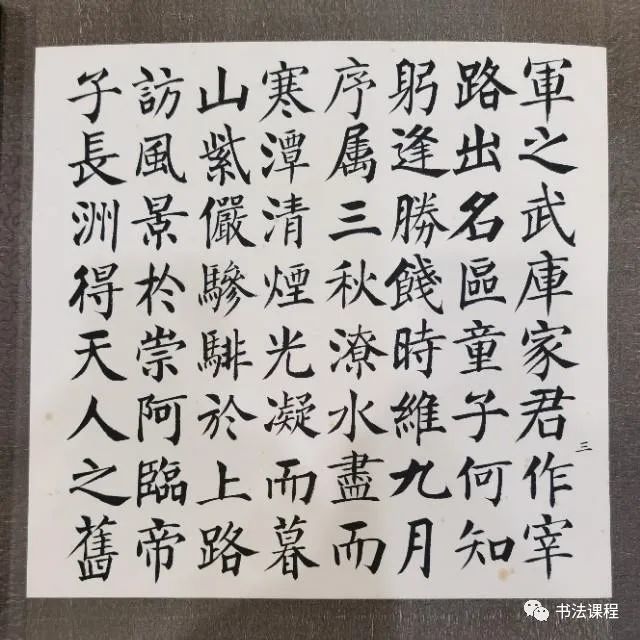 軍之武庫家君作宰
路出名區童子何知
躬逢勝餞時維九月
序属三秋潦水盡而
寒潭清煙光凝而暮
山紫儼驂騑於上路
訪風景於崇阿臨帝
子長洲得天人之舊
三
书法课程